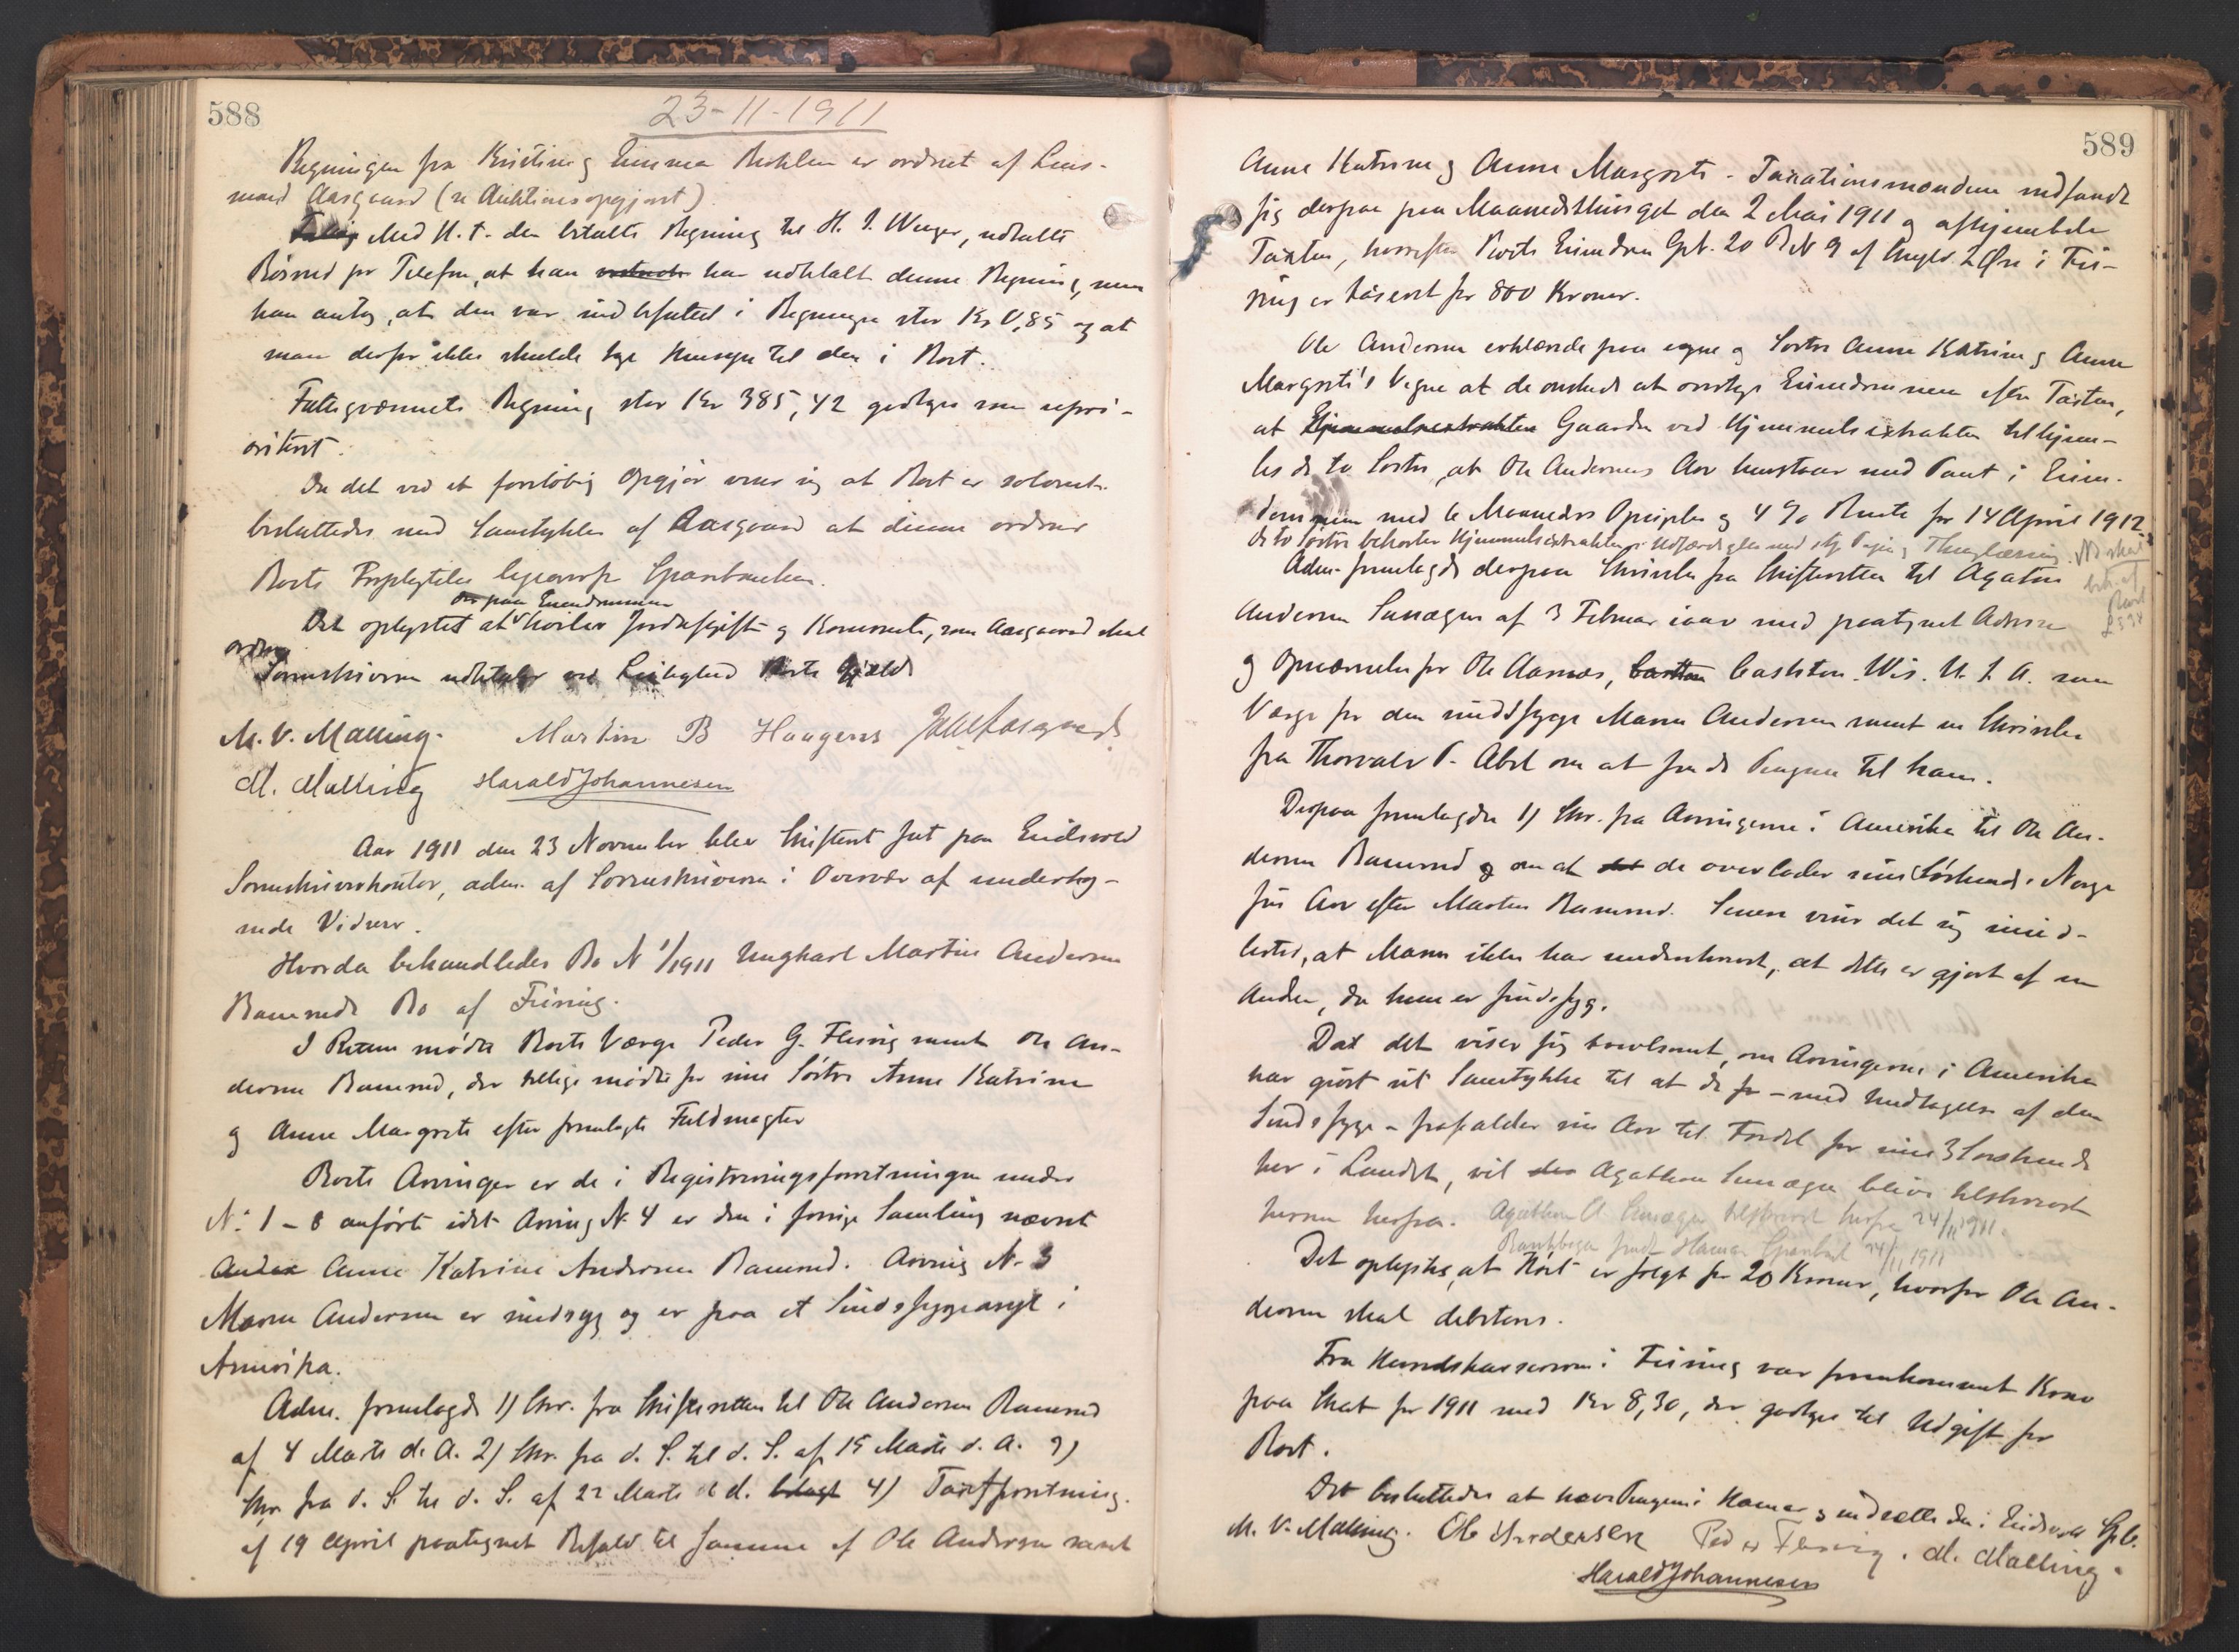 588
23-11-1911
Regningen fra Kristine og Emma er ordnet af Lens-
mand Aasgaard (se Auktionsopgjøret).
Med H. t. den betalte Regning til H. J. Wenger, udtalte
Rösnæd pr Telefon, at han har udbetalt denne Regning, men
han antog, at den var indbefattet i Regningen stor Kr 0,85 og at
man derfor ikke skulde tage Hensyn til den i Boet.
Fattigvæsenets Regning stor Kr 385,42 godtages som uprio-
riteret.
Da det ved et foreløbig Opgjør viser sig at Boet er solvent
besluttedes med Samtykke af Aasgaard at denne ordner
Boets Forpligtelser ligeoverfor Sparebanken.
der paa Eiendommen
Det oplystes at hviler Jordafgift og Kornrente, som Aasgaard skal
ordne
Sorenskriveren udbetaler ved Leilighed Boets Gjæld
M. V. Malling. Martin B Haagens Aasgaard
M. Malling Harald Johannesen
Aar 1911 den 23 November blev Skifteret sat paa Eidsvold
Sorenskriverkontor, adm. af Sorenskriveren i Overvær af underteg-
nede Vidner.
Hvorda behandledes Bo N 1/1911 Ungkarl Martin Andersen
Ramruds Bo af Feiring.
I Retten mödte Boets Værge Peder G. Flesvig samt Ole An-
dersen Ramrud, der tillige mödte for sine Söstre Anne Katrine
og Anne Margrete efter fremlagte Fuldmagter
Boets Arvinger er de i Registreringsforretningen under
N: 1 - 8 anförte idet Arving N. 4 er den i forrige Samling nævnt
Anne Katrine Andersen Ramrud. Arving N. 3
Maren Andersen er sindsyg og er paa et Sindssygeasyl i
Amerika.
Adm. fremlagde 1) Skr. fra Skifteretten til Ole Andersen Ramrud
af 4 Marts d. A. 2) Skr. fra d. S. til d. S. af 15 Marts d. A. 3)
Skr. fra d. S. til d. S. af 22 Marts d. 4) Taxtforretning
af 19 April paategnet Befalv til samme af Ole Andersen samt
589
Anne Katrine og Anne Margrete. Taxationsmændene indfandt
sig derpaa paa Maanedsthinget den 2 Mai 1911 og afhjemlede
Taxten, hvorefter Boets Eiendom Gr. 20 B N 9 af Skyld. 2 Øre i Fei-
ring er taxeret for 800 Kroner.
Ole Andersen erklærede paa egne og Søstre Anne Katrine og Anne
Margrete's Vegne at de ønskede at overtage Eiendommen efter Taxten,
at Gaarden ved Hjemmelsextrakten tilhjem-
les de to Søstre, at Ole Andersens Arv henstaar med Pant i Eien-
dommen med 6 Maaneders Opsigelse og 4 % Rente fra 14 April 1912
de to Søstre bekoster Hjemmelsextraktens Udfærdigelse med stp. Papir og Thinglæsning. Nei skal
bet. af
Boet
Adm. fremlagde derpaa Skrivelse fra Skifteretten til Agaton
Andersen Sunægen af 3 Februar iaar med paategnet Adresse
og Opnævnelse for Ole Aamæs, Cashton. Wis. U. S. A. som
Værge for den sindssyge Maren Andersen samt en Skrivelse
fra Thorvald P. Abel om at sende Pengene til ham.
Derpaa fremlagdes 1) Skr. fra Arvingerne i Amerika til Ole An-
dersen Ramrud om at de overlader sine Söskende i Norge
sin Arv efter Martin Ramrud. Senere viser det sig imid-
lertid, at Maren ikke har underskrevet, at dette er gjort af en
Anden, da hun er sindssyg.
Da det viser sig tvivlsomt, om Arvingerne i Amerika
har givet sit Samtykke til at de - med Undtagelse af den
Sindssyge - frafalder sin Arv til Fordel for sine 3 Søskende
her i Landet, vil Agathon Sunægen blive tilskrevet
herom herfra. Agathon A Sunægen tilskrevet herfra 24/11 1911.
Bankbogen sendt Hamar Sparebank 24/11 1911
Det oplystes, at Höiet er solgt for 20 Kroner, hvorfor Ole An-
dersen skal debiteres.
Fra Herredskassereren i Feiring var fremkommet Krav
paa Skat for 1911 med Kr 8,30, der godtages til Udgift for
Boet.
Det besluttedes at hæve Pengene i Hamar og indsætte dem i Eidsvold Spb.
M. V. Malling. Ole Andersen Peder Flesvig. M. Malling.
Harald Johannesen